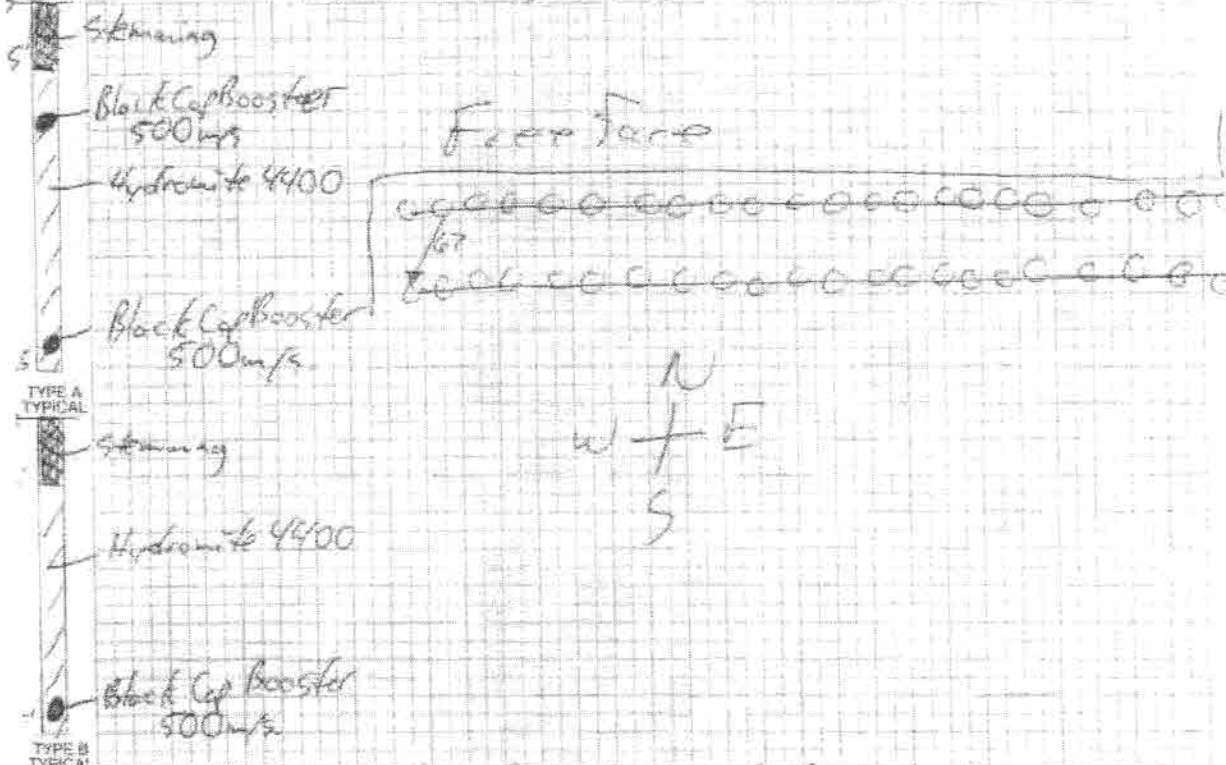 Stemming
5
Black Cap Booster
500 m/s
Hydromite 4400
Free Face
67
Black Cap Booster
500 m/s
5
TYPE A
TYPICAL
N
W E
S
Stemming
Hydromite 4400
Black Cap Booster
500 m/s
TYPE B
TYPICAL